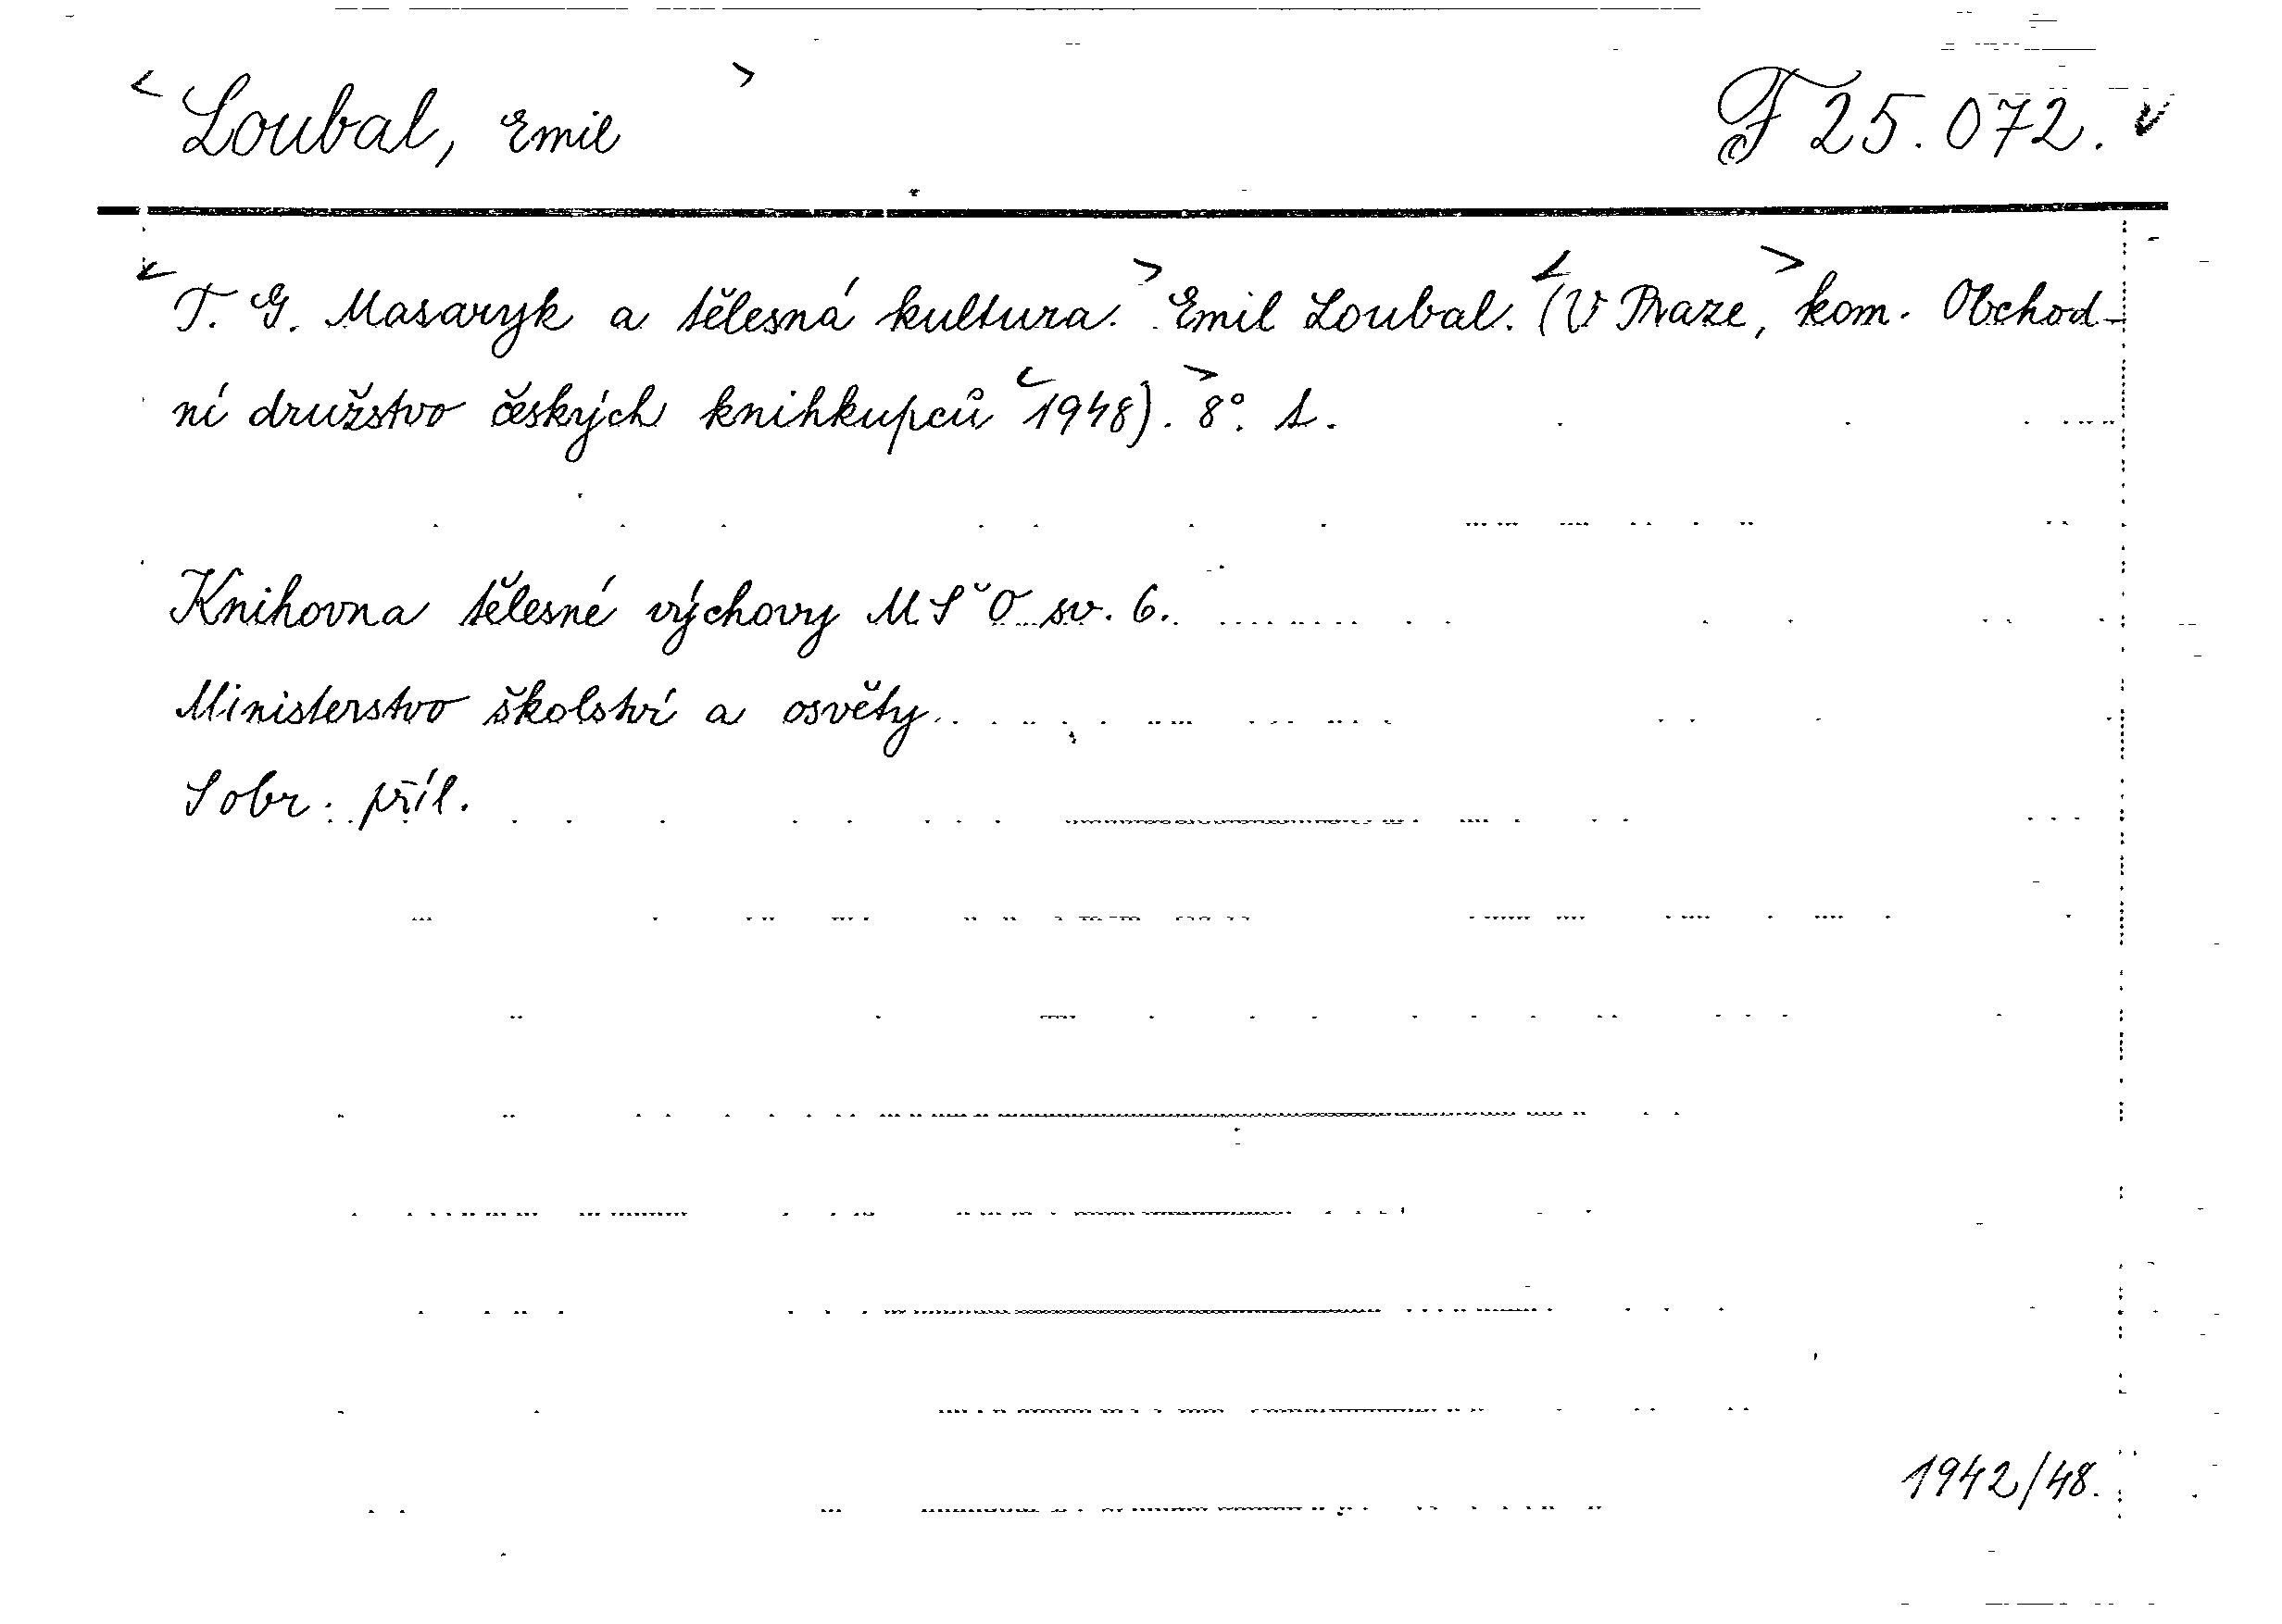 Loubal, Emil F 25.072. v
T. G. Masaryk a tělesná kultura. Emil Loubal. (V Praze, kom. Obchod-
ní družstvo českých knihkupců 1948). 8°. s.
Knihovna tělesné výchovy MŠO sv. 6.
Ministerstvo školství a osvěty.
S obr. příl.
1942/48.